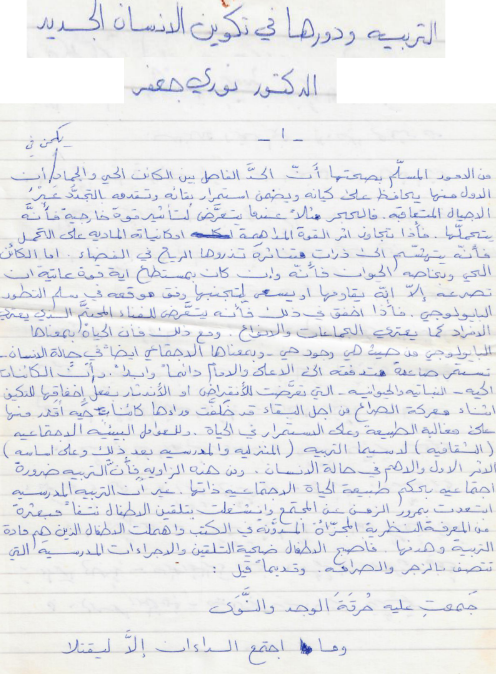 التربيه ودورها في تكوين الانسان الجديد
الدكتور نوري جعفر
- ١ -
يكمن في
من الامور المسلَّم بصحتها أنّ الحدَّ الفاصل بين الكائن الحي والجماد أن
الاول منها يحافظ على كيانه ويضمن استمرار بقائه وتقدمه بالتجدّد عَبْرَ
الاجيال المتعاقبه. فالحجر مثلاً عندما يتعرَّض لتأثير قوة خارجية فأنّه
يتحملّها. فأذا تجاوز اثر القوة المداهمة امكانياته الماديه على التحمل
فأنّه يتهشّم الى ذرات متناثرة تذروها الرياح في الفضاء. اما الكائن
الحي وبخاصه الحيوان فأنّه وإن كان بمستطاع اية قوة عاتية ان
تصرعه إلاّ إنّه يقاومها او يسعى لتجنبها وفق موقعه في سلم التطور
البايولوجي. فأذا اخفق في ذلك فأنّه يتعرَّض للفناء المحتَّم الذي يعتري
الافراد كما يعتري الجماعات والانواع. ومع ذلك فأن الحياة بمعناها
البايولوجي من حيث هي وجود حي - وبمعناها الاجتماعي ايضاً في حالة الانسان -
تستمر صاعدة متدفقه الى الاعلى والامام دائماً وابداً. وأنّ الكائنات
الحيه - النباتيه والحيوانيه - التي تعرَّضت للأنقراض او الأندثار بفعل إخفاقها للتكيف
اثناء معركة الصراع من اجل البقاء قد خلّفت وراءها كائنات حيه اقدر منها
على مغالبة الطبيعة وعلى الاستمرار في الحياة. وللعوامل البيئيه الاجتماعيه
(الثقافيه) لاسيما التربيه (المنزليه والمدرسيه بعد ذلك وعلى اساسه)
الاثر الاول والاهم في حالة الانسان. ومن هذه الزاويه فأنّ التربيه ضرورة
اجتماعيه بحكم طبيعة الحياة الاجتماعيه ذاتها. غير أنّ التربيه المدرسيه
ابتعدت بمرور الزمن عن المجتمع وانشغلت بتلقين الاطفال نتفاً مبعثرة
من المعرفة النظرية المجزّأة المدوّنة في الكتب واهملت الاطفال الذين هم مادة
التربية وهدفها. فأصبح الاطفال ضحية التلقين والاجراءات المدرسيه التي
تتصف بالزجر والصرامه. وقديماً قيل:
جَمعتِ عليه حُرقَةَ الوجد والنَّوَى
وما اجتمع الداءان إلاَّ ليقتلا